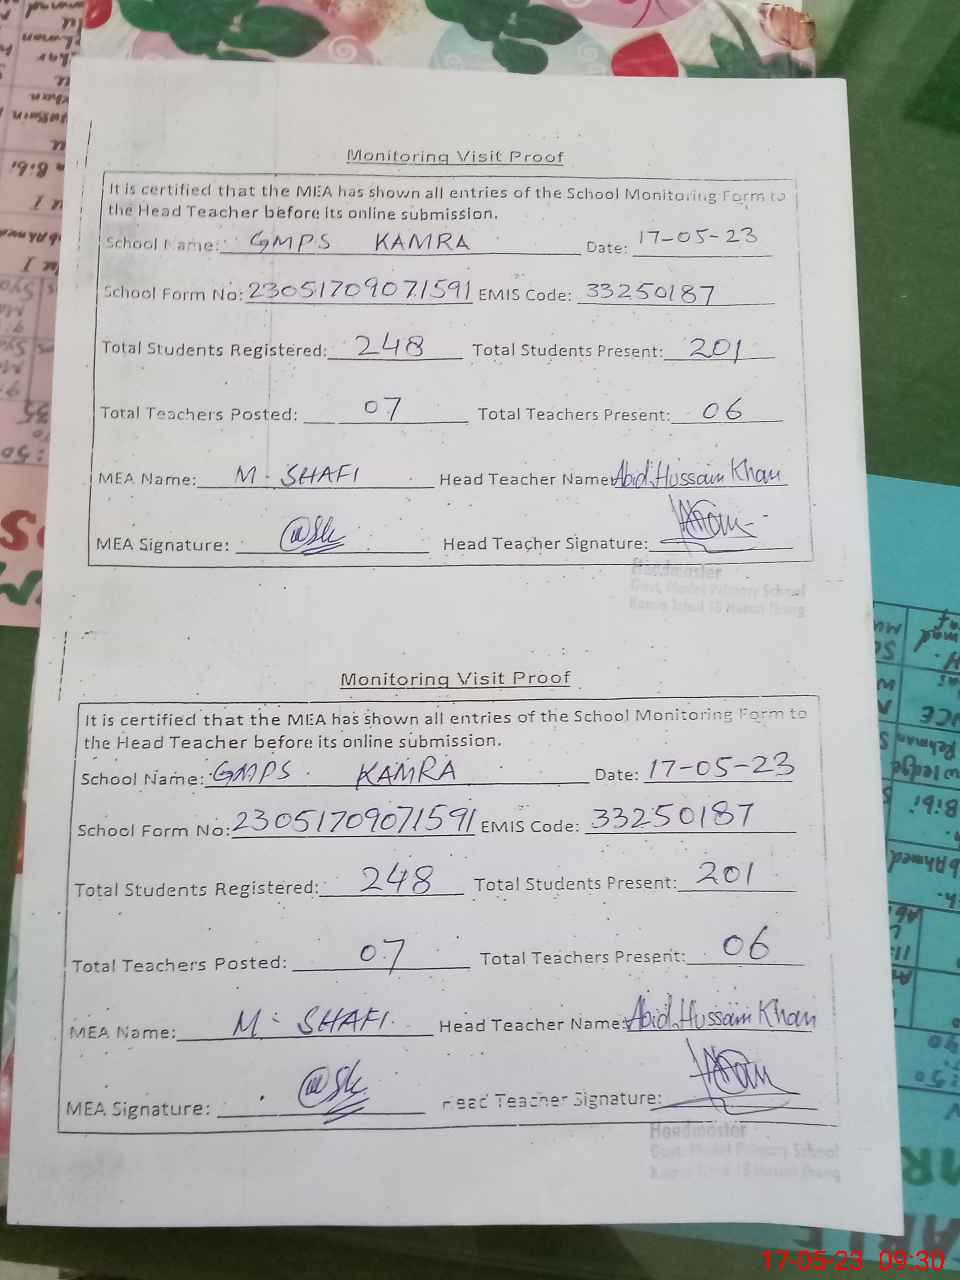 Monitoring Visit Proof
It is certified that the MEA has shown all entries of the School Monitoring Form to
the Head Teacher before its online submission.
School Name: GMPS KAMRA Date: 17-05-23
School Form No: 23051709071591 EMIS Code: 33250187
Total Students Registered: 248 Total Students Present: 201
Total Teachers Posted: 07 Total Teachers Present: 06
MEA Name: M. SHAFI Head Teacher Name: Abid Hussain Khan
MEA Signature: Head Teacher Signature:
Headmaster
Govt. Model Primary School
Monitoring Visit Proof
It is certified that the MEA has shown all entries of the School Monitoring Form to
the Head Teacher before its online submission.
School Name: GMPS KAMRA Date: 17-05-23
School Form No: 23051709071591 EMIS Code: 33250187
Total Students Registered: 248 Total Students Present: 201
Total Teachers Posted: 07 Total Teachers Present: 06
MEA Name: M. SHAFI Head Teacher Name: Abid Hussain Khan
MEA Signature: Head Teacher Signature:
Headmaster
Govt. Model Primary School
17-05-23 09:30